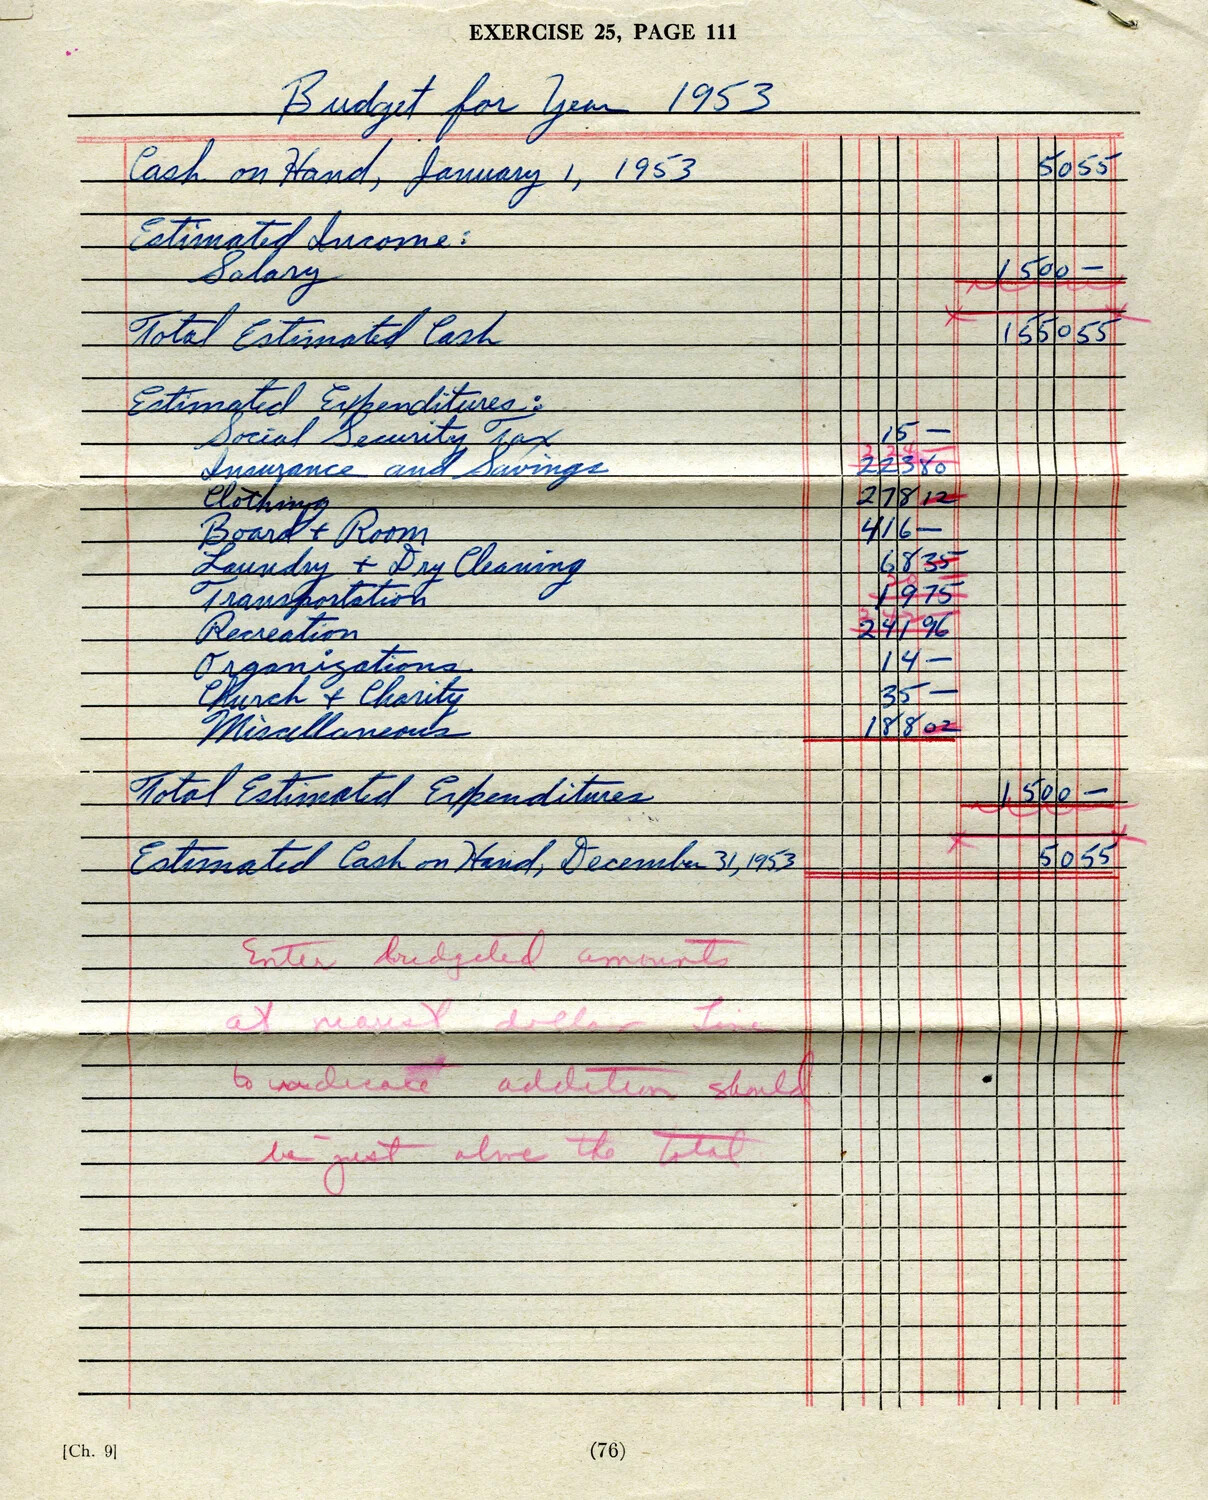 EXERCISE 25, PAGE 111
Budget for Year 1953
Cash on Hand, January 1, 1953 50 55
Estimated Income:
Salary 1500 —
Total Estimated Cash 1550 55
Estimated Expenditures:
Social Security Tax 15 —
Insurance and Savings 223 80
Clothing 278 12
Board + Room 416 —
Laundry + Dry Cleaning 68 35
Transportation 19 75
Recreation 241 96
Organizations 14 —
Church + Charity 35 —
Miscellaneous 188 02
Total Estimated Expenditures 1500 —
Estimated Cash on Hand, December 31, 1953 50 55
Enter budgeted amounts
at nearest dollar Line
to indicate addition should
be just above the total
[Ch. 9]
(76)